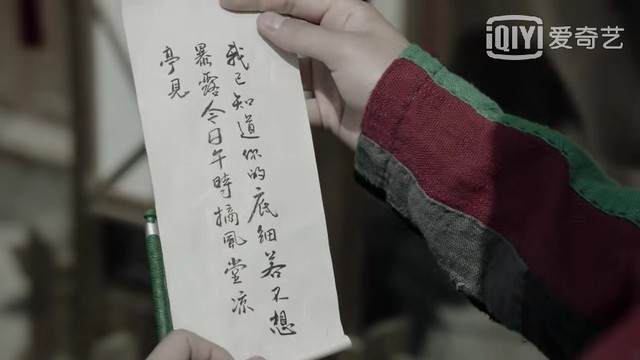 我已知道你的底细若不想
暴露今日午時摘風堂凉
亭見
iQIYI 爱奇艺